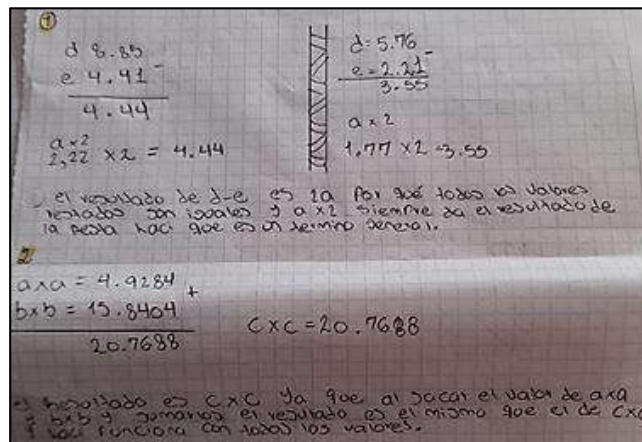 1
d 8.85
e 4.41 -
4.44
a x 2
2,22 x 2 = 4.44
d = 5.76 -
e = 2.21
3.55
a x 2
1,77 x 2 = 3.55
el resultado de d-e es 2a Por qué todos los valores
restados son iguales y a x 2 siempre da el resultado de
la resta haci que es un termino general.
2
axa = 4.9284 +
bxb = 15.8404
20.7688
CxC = 20.7688
el resultado es CxC Ya que al sacar el valor de axa
bxb y sumarlos el resultado es el mismo que el de CxC
haci funciona con todos los valores.